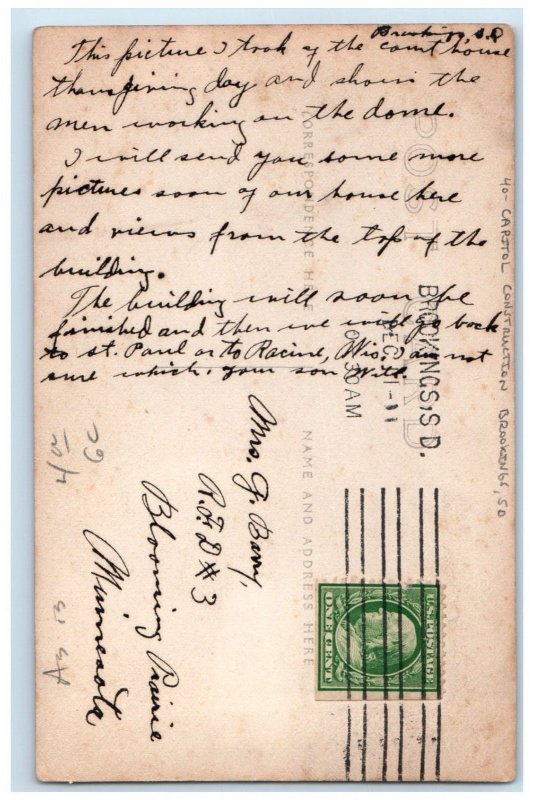 Brookings, S.D
This picture I took of the court house
thanksgiving day and shows the
men working on the dome.
I will send you some more
pictures soon of our house here
and views from the top of the
building.
The building will soon be
finished and then we will go back
to St. Paul or to Racine, Wis. I am not
sure which. your son Will.
POST CARD
CORRESPONDENCE HERE
NAME AND ADDRESS HERE
BROOKINGS, S.D.
DEC 1 11
30 AM
Mrs. G. Barry,
R.F.D # 3
Blooming Prairie
Minnesota
U.S. POSTAGE
ONE CENT
40- CAPITOL CONSTRUCTION BROOKINGS, SD
As is